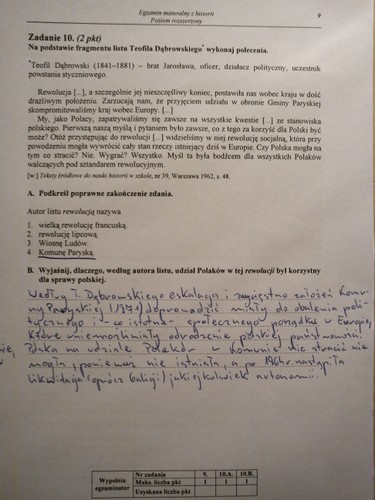 Egzamin maturalny z historii
Poziom rozszerzony
9
Zadanie 10. (2 pkt)
Na podstawie fragmentu listu Teofila Dąbrowskiego* wykonaj polecenia.
*Teofil Dąbrowski (1841–1881) – brat Jarosława, oficer, działacz polityczny, uczestnik
powstania styczniowego.
Rewolucja [...], a szczególnie jej nieszczęśliwy koniec, postawiła nas wobec kraju w dość
drażliwym położeniu. Zarzucają nam, że przyjęciem udziału w obronie Gminy Paryskiej
skompromitowaliśmy kraj wobec Europy. [...]
My, jako Polacy, zapatrywaliśmy się zawsze na wszystkie kwestie [...] ze stanowiska
polskiego. Pierwszą naszą myślą i pytaniem było zawsze, co z tego za korzyść dla Polski być
może? Otóż przystępując do rewolucji [...] widzieliśmy w niej rewolucję socjalną, która przy
powodzeniu mogła wywrócić cały stan rzeczy istniejący dziś w Europie. Czy Polska mogła na
tym co stracić? Nie. Wygrać? Wszystko. Myśl ta była bodźcem dla wszystkich Polaków
walczących pod sztandarem rewolucyjnym.
[w:] Teksty źródłowe do nauki historii w szkole, nr 39, Warszawa 1962, s. 48.
A. Podkreśl poprawne zakończenie zdania.
Autor listu rewolucją nazywa
1. wielką rewolucję francuską.
2. rewolucję lipcową.
3. Wiosnę Ludów.
4. Komunę Paryską.
B. Wyjaśnij, dlaczego, według autora listu, udział Polaków w tej rewolucji był korzystny
dla sprawy polskiej.
Według T. Dąbrowskiego eskalacja i zwycięstwo założeń Komu-
ny Paryskiej (1871) doprowadzić miały do obalenia poli-
tycznego i - co istotne - społecznego porządku w Europie,
które uniemożliwiały odrodzenie polskiej państwowości.
Polska na udziale Polaków w Komunie nic stracić nie
mogła, ponieważ nie istniała, a po 1864r. nastąpiła
likwidacja (oprócz Galicji) jakiejkolwiek autonomii.
Wypełnia
egzaminator
Nr zadania 9. 10.A. 10.B.
Maks. liczba pkt 1 1 1
Uzyskana liczba pkt